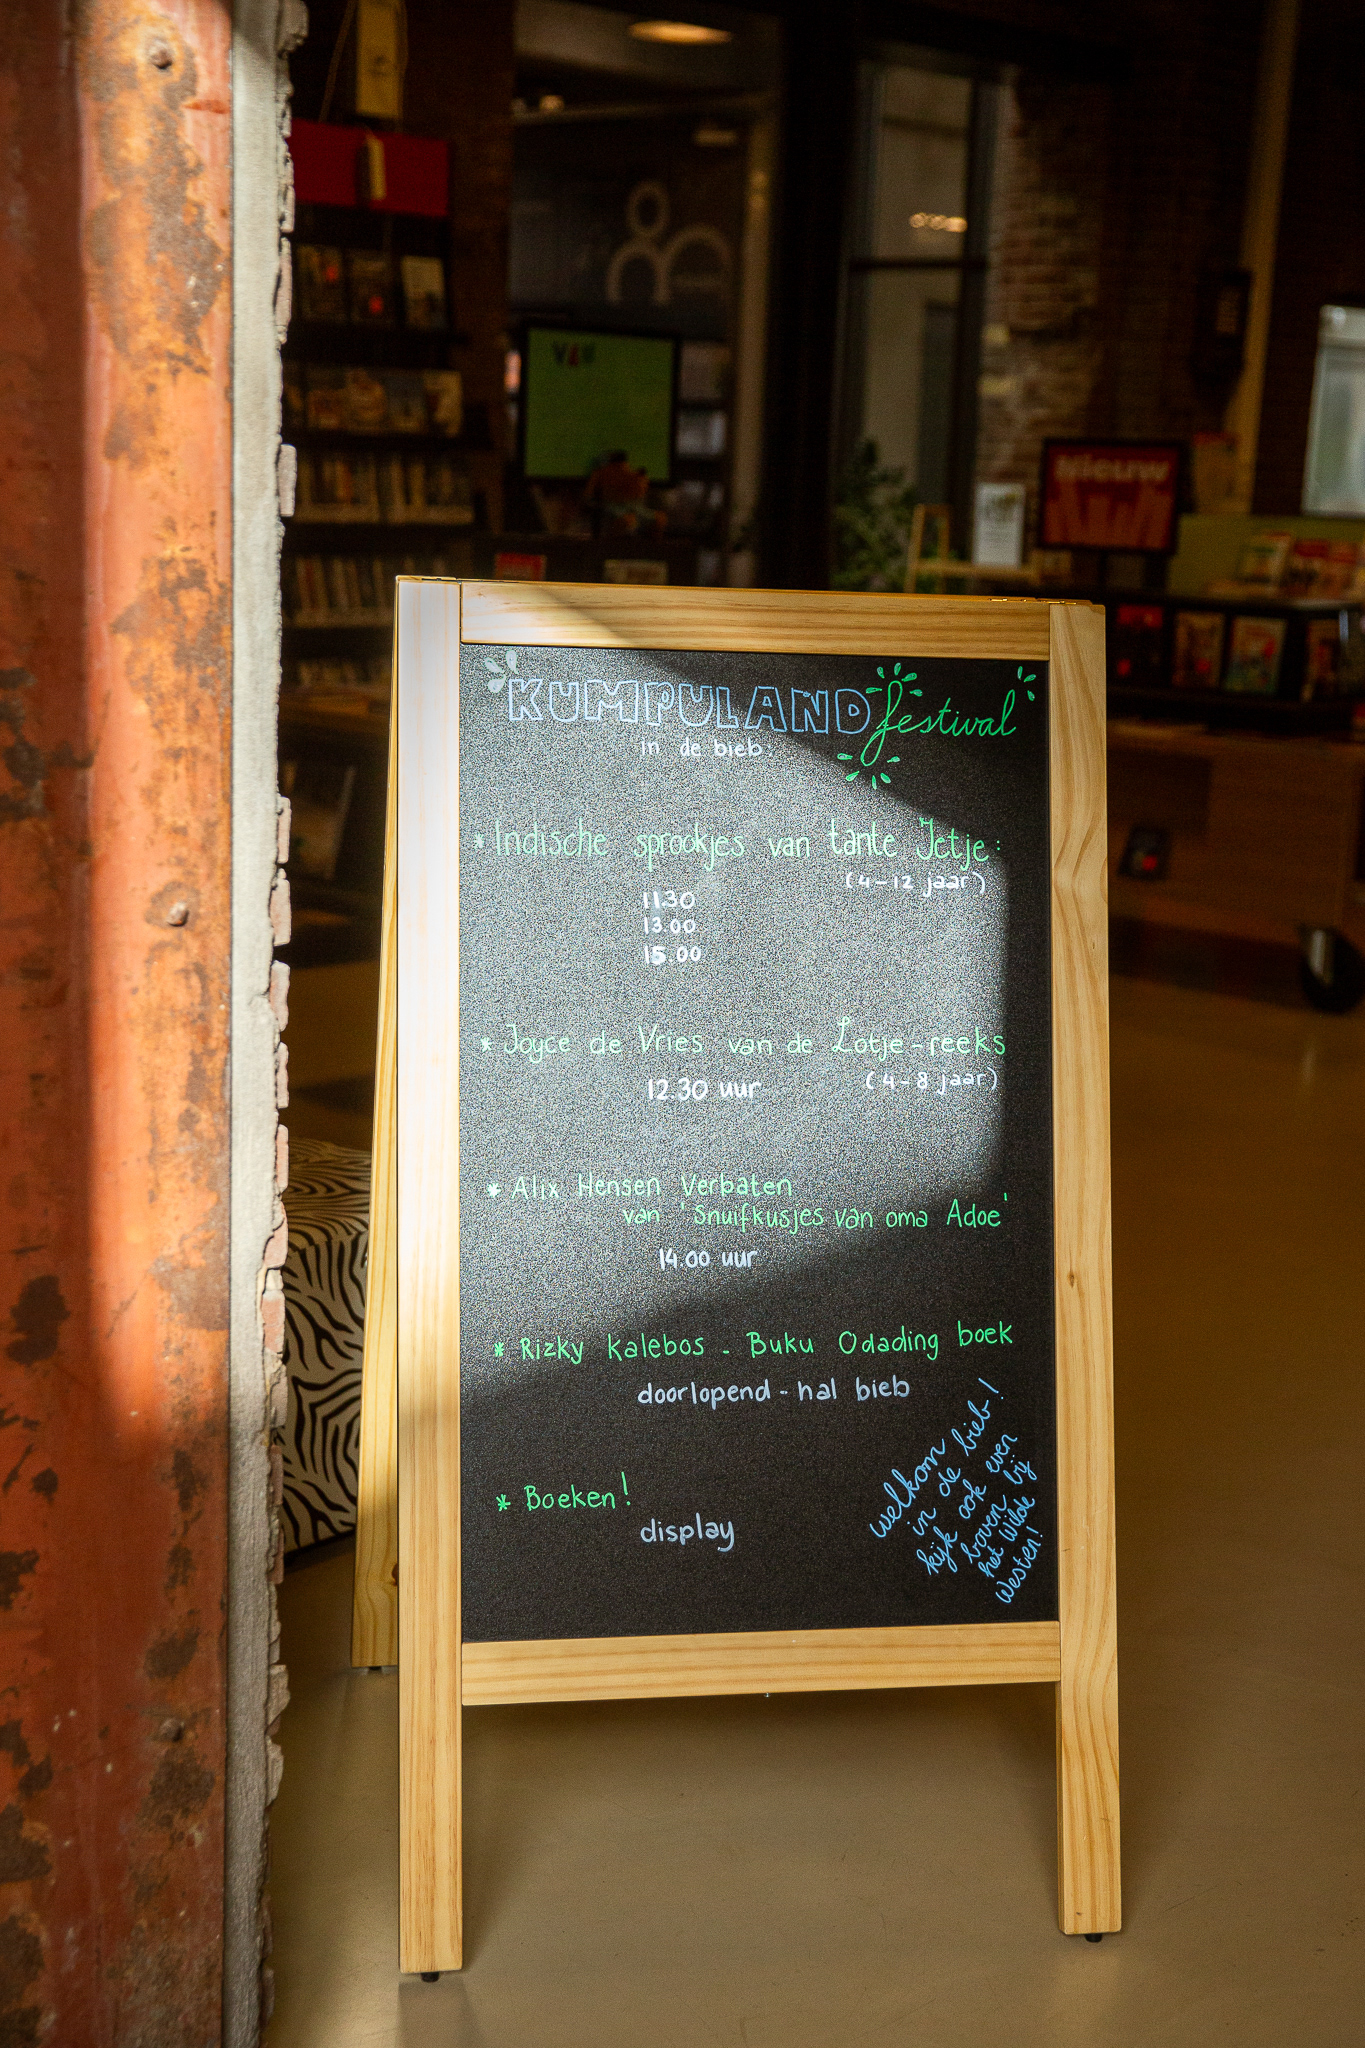 VAN
Nieuw
KUMPULAND festival
in de bieb
* Indische sprookjes van tante Jetje:
(4-12 jaar)
11.30
13.00
15.00
* Joyce de Vries van de Lotje-reeks
12.30 uur (4-8 jaar)
* Alix Hensen Verbaten
van 'Snuifkusjes van oma Adoe'
14.00 uur
* Rizky Kalebos - Buku Odading boek
doorlopend - hal bieb
* Boeken!
display
welkom
in de bieb!
kijk ook even
boven bij
het Wilde
Westen!